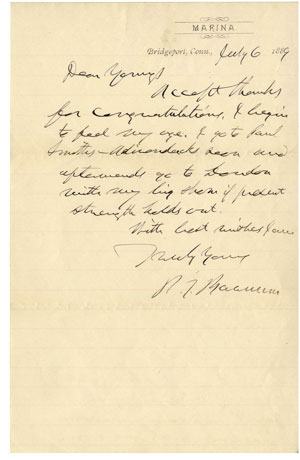 MARINA
Bridgeport, Conn., July 6 1889
Dear Youngs
Accept thanks
for congratulations. I begin
to feel my age. I go to Paul
Smiths - Adirondacks soon and
afterwards go to London
with my big show if present
strength holds out.
With best wishes I am
Truly Yours
P. T. Barnum